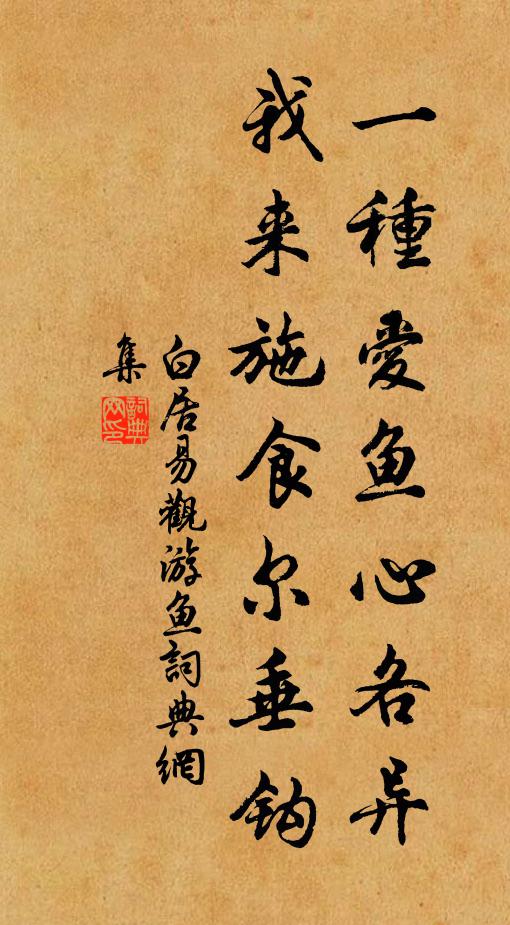 一種愛鱼心各异
我来施食尔垂钩
白居易觀游鱼詞典網
集
詞典网印